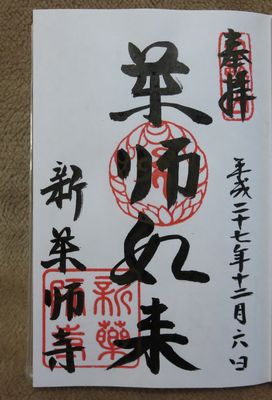 奉拝
平成二十七年十二月六日
薬師如来
新薬師寺
新薬
師寺